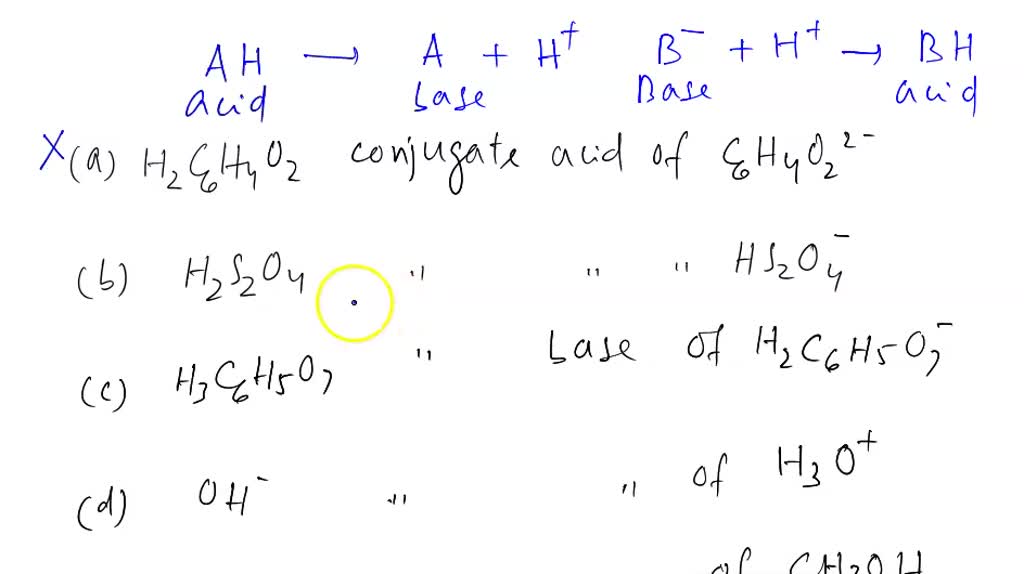 AH → A + H⁺ B⁻ + H⁺ → BH
acid base Base acid
X (a) H₂C₆H₄O₂ conjugate acid of C₆H₄O₂²⁻
(b) H₂S₂O₄ " " " HS₂O₄⁻
(c) H₃C₆H₅O₇ " base of H₂C₆H₅O₇⁻
(d) OH⁻ " " of H₃O⁺
of CH₃OH